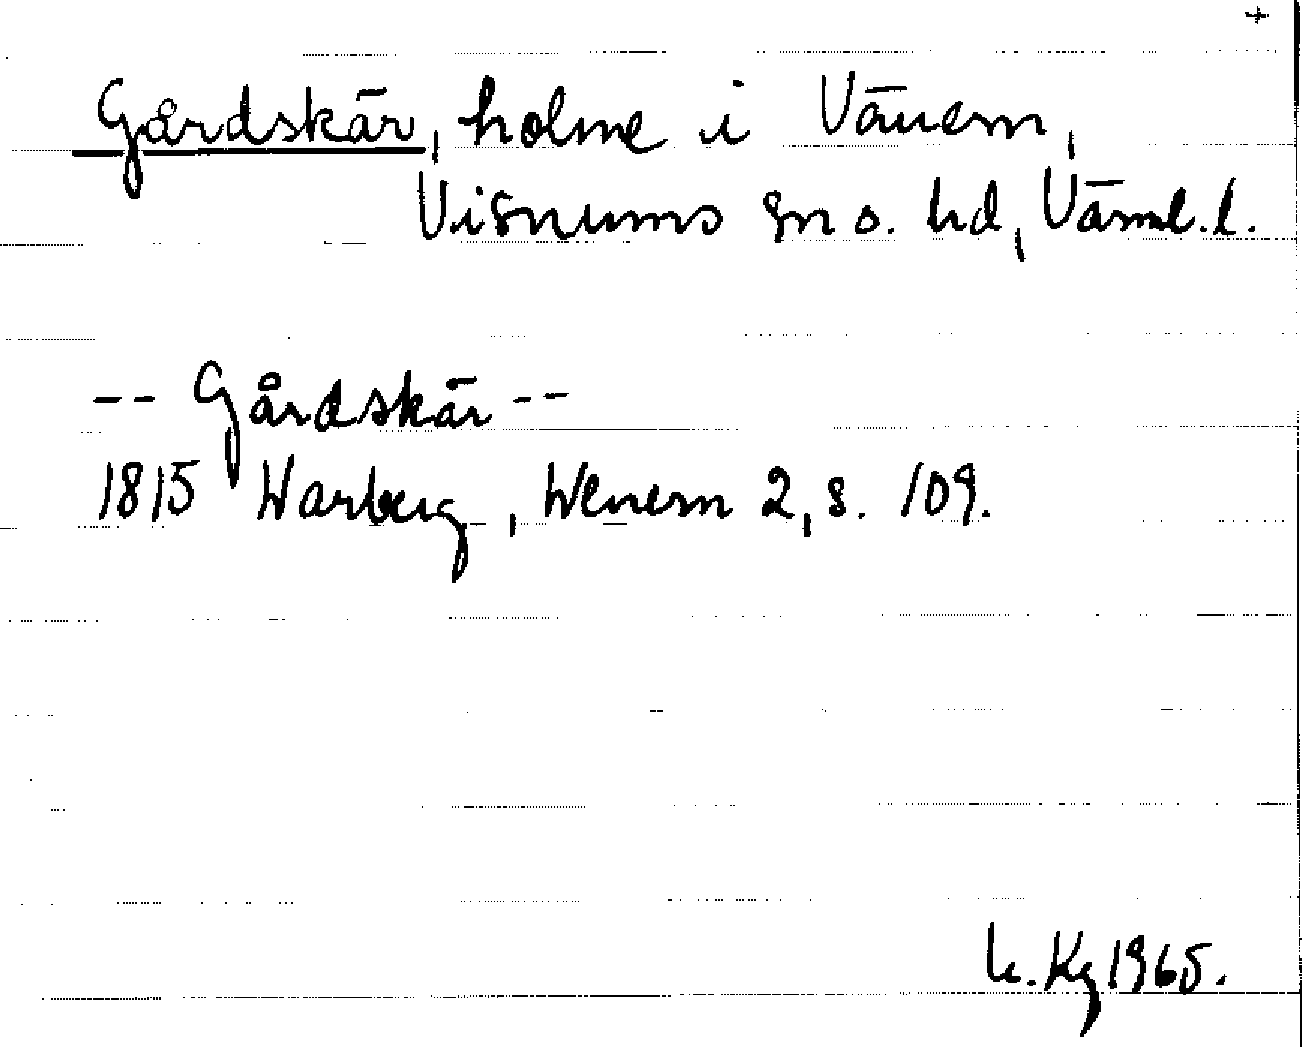 +
Gårdskär, holme i Vänern,
Visnums sn o. hd, Värml. l.
-- Gårdskär --
1815 Warberg, Wenern 2, s. 109.
K. Kg 1965.